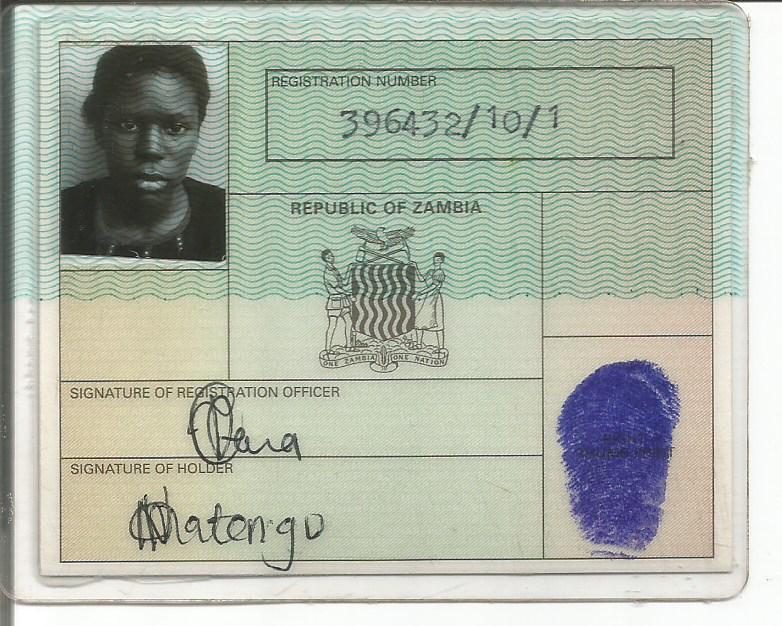 REGISTRATION NUMBER
396432/10/1
REPUBLIC OF ZAMBIA
ONE ZAMBIA ONE NATION
SIGNATURE OF REGISTRATION OFFICER
SIGNATURE OF HOLDER
RIGHT
THUMB PRINT